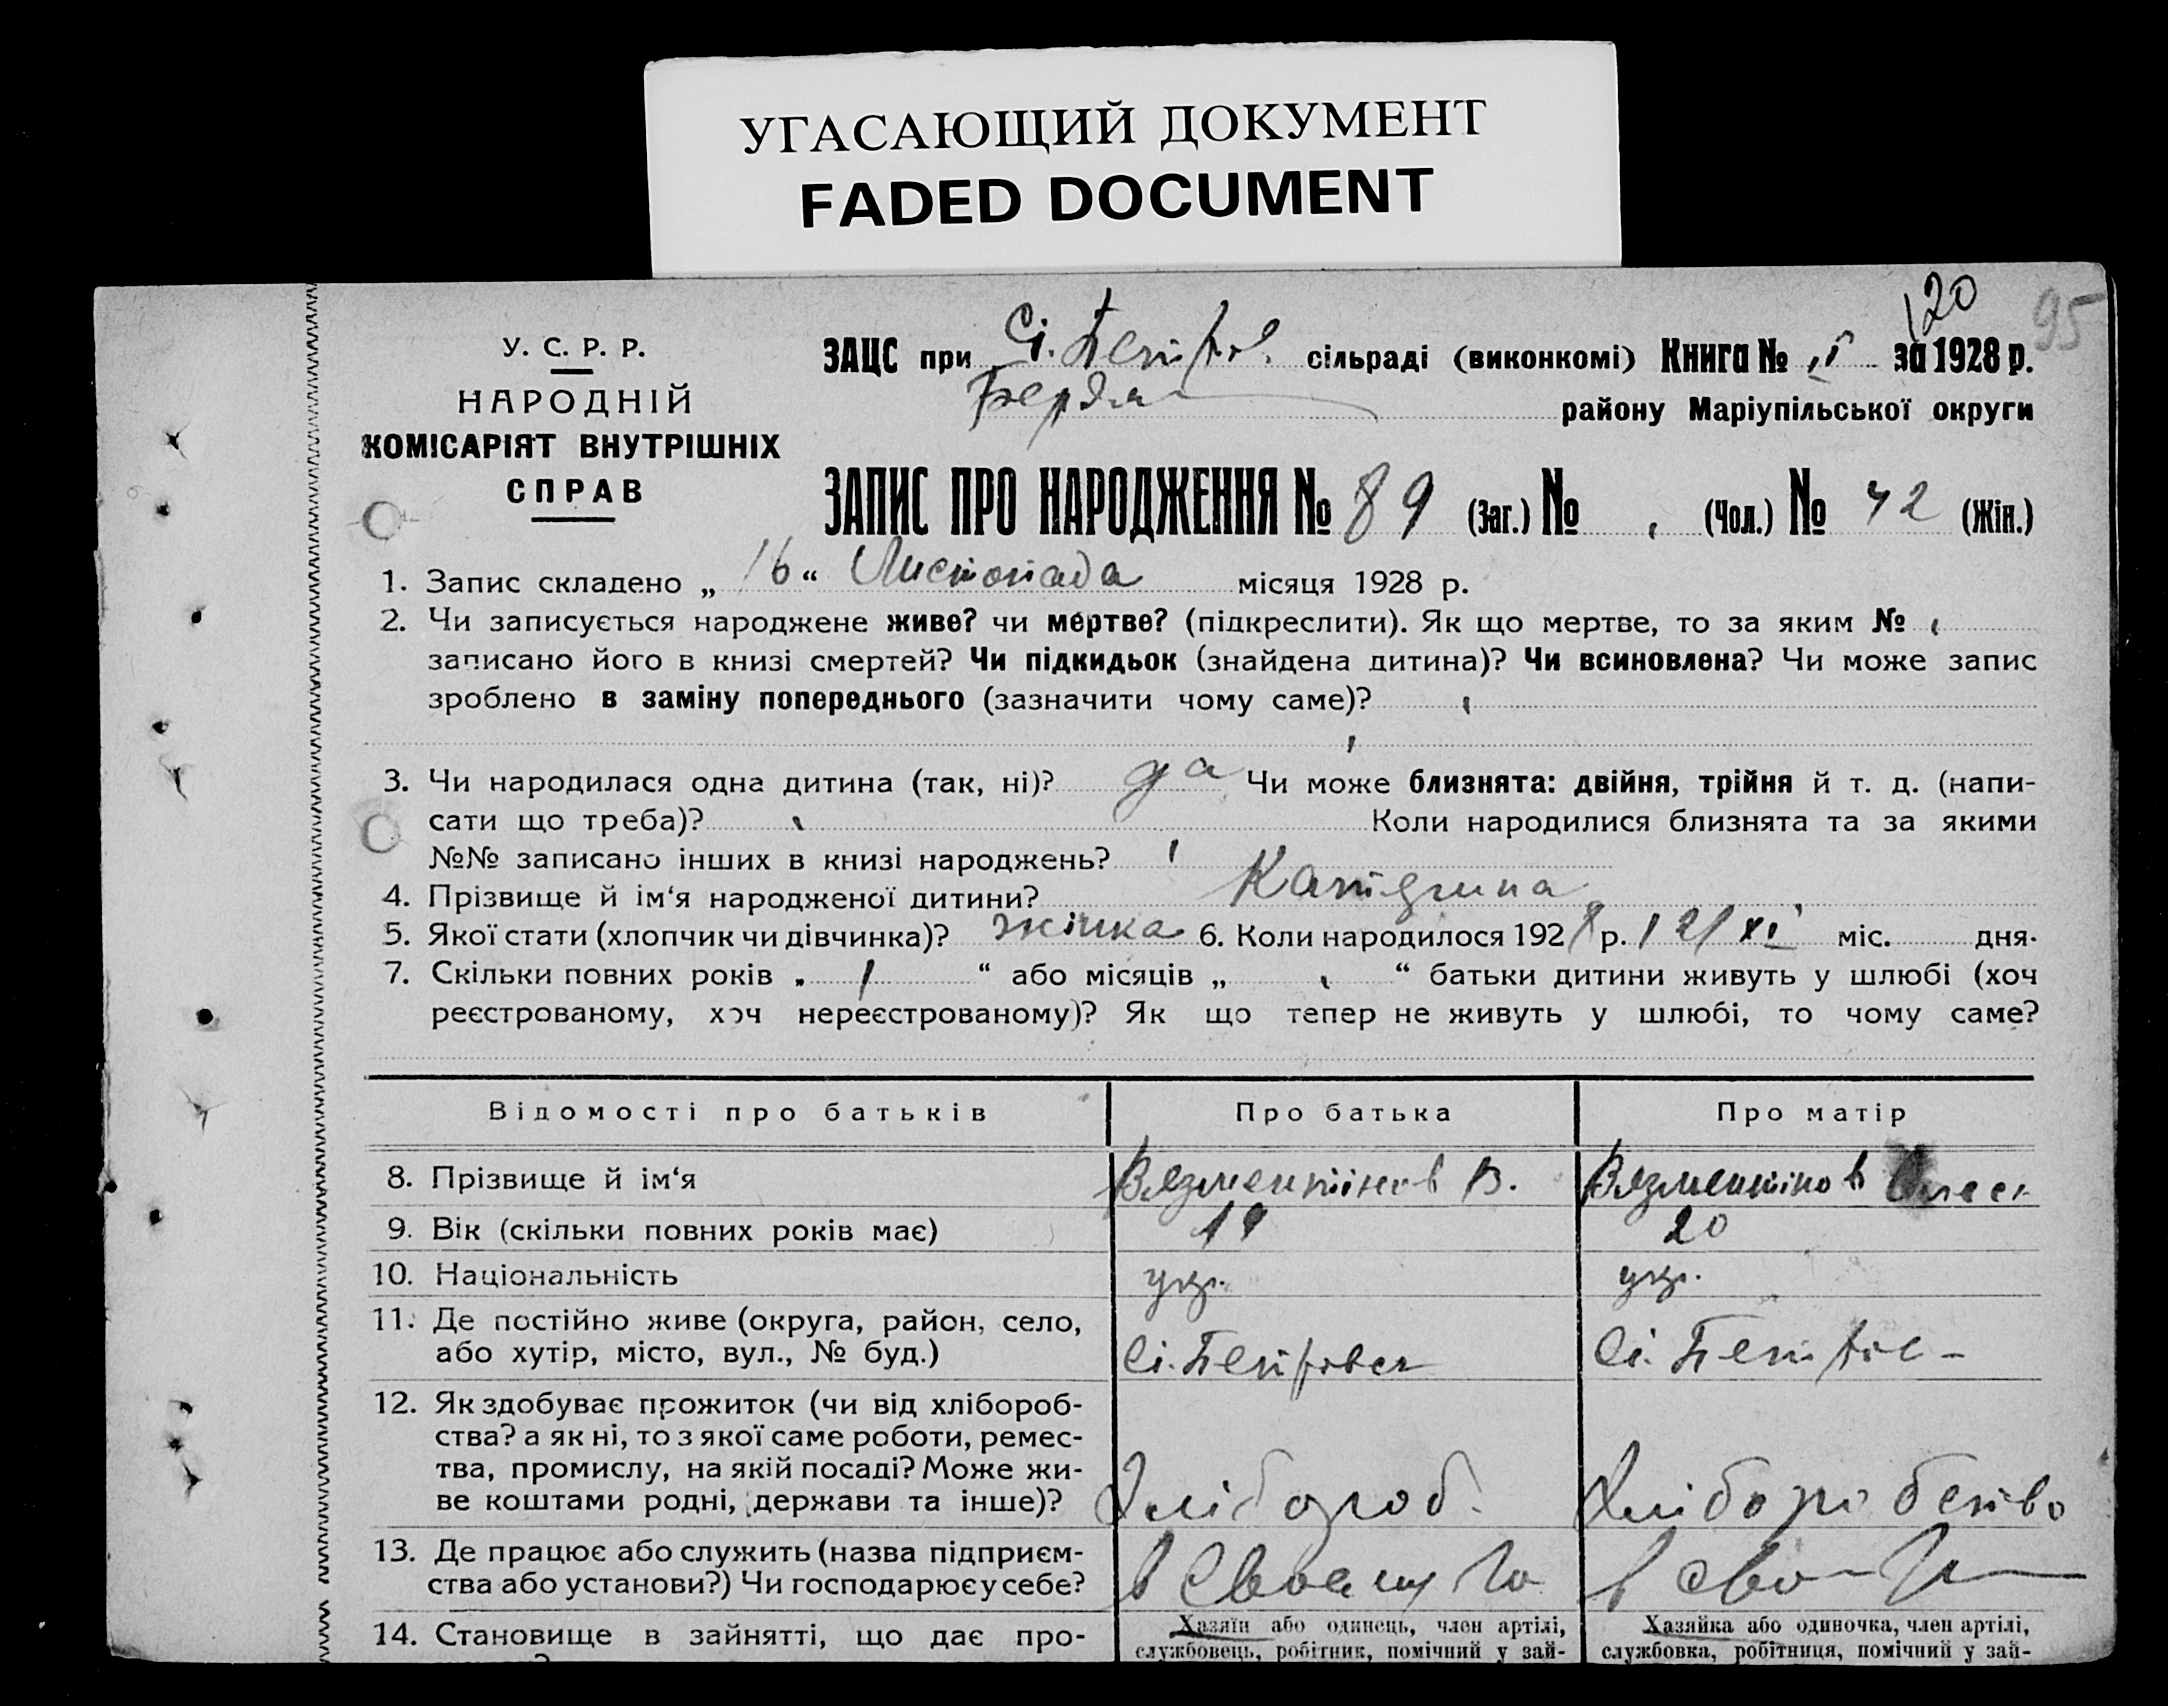 УГАСАЮЩИЙ ДОКУМЕНТ
FADED DOCUMENT
120 95
У. С. Р. Р.
НАРОДНІЙ
КОМІСАРІЯТ ВНУТРІШНІХ
СПРАВ
ЗАЦС при сільраді (виконкомі) Книга № II за 1928 р.
району Маріупільської округи
ЗАПИС ПРО НАРОДЖЕННЯ № 89 (Заг.) № (Чол.) № 42 (Жін.)
1. Запис складено „ 16 “ Листопада місяця 1928 р.
2. Чи записується народжене живе? чи мертве? (підкреслити). Як що мертве, то за яким №
записано його в книзі смертей? Чи підкидьок (знайдена дитина)? Чи всиновлена? Чи може запис
зроблено в заміну попереднього (зазначити чому саме)?
3. Чи народилася одна дитина (так, ні)? да Чи може близнята: двійня, трійня й т. д. (напи-
сати що треба)? Коли народилися близнята та за якими
№№ записано інших в книзі народжень?
4. Прізвище й ім‘я народженої дитини?
5. Якої стати (хлопчик чи дівчинка)? жінка 6. Коли народилося 1928 р. міс. дня.
7. Скільки повних років „ 1 “ або місяців „ “ батьки дитини живуть у шлюбі (хоч
реєстрованому, хоч нереєстрованому)? Як що тепер не живуть у шлюбі, то чому саме?
Відомості про батьків Про батька Про матір
8. Прізвище й ім‘я Вязментінов В. Вязментінов
9. Вік (скільки повних років має) 19 20
10. Національність укр. укр.
11. Де постійно живе (округа, район, село,
або хутір, місто, вул., № буд.) Сі. Петровск Сі.
12. Як здобуває прожиток (чи від хлібороб-
ства? а як ні, то з якої саме роботи, ремес-
тва, промислу, на якій посаді? Може жи-
ве коштами родні, держави та інше)? Хлібороб. Хліборобство
13. Де працює або служить (назва підприєм-
ства або установи?) Чи господарює у себе? в своему
14. Становище в зайнятті, що дає про- Хазяїн або одинець, член артілі, Хазяйка або одиночка, член артілі,
службовець, робітник, помічний у зай- службовка, робітниця, помічний у зай-